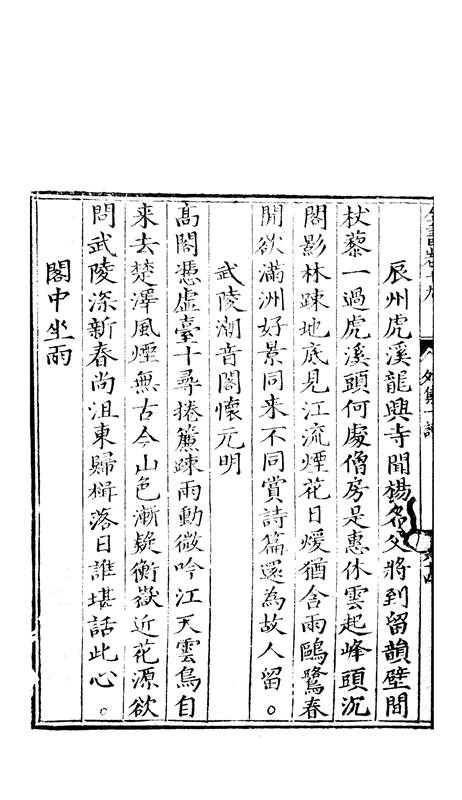 辰州虎溪龍興寺聞楊名父將到留韻壁間
杖藜一過虎溪頭何處僧房是惠休雲起峰頭沉
閣影林踈地底見江流煙花日煖猶含雨鷗鷺春
閒欲滿洲好景同来不同賞詩篇還為故人留。
武陵潮音閣懷元明
髙閣憑虛臺十尋捲簾踈雨動微吟江天雲鳥自
来去楚澤風煙無古今山色漸疑衡嶽近花源欲
問武陵深新春尚沮東歸楫落日誰堪話此心。
閣中坐雨